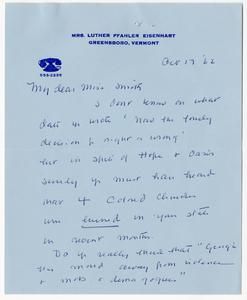 MRS. LUTHER PFAHLER EISENHART
GREENSBORO, VERMONT
533-2229
Oct 17 '62
My dear Miss Smith
I don't know on what
date you wrote "Now the lonely
decision for right or wrong"
but in spite of Hope & Oasis
surely you must have heard
that 4 Colored Churches
were burned in your state
in recent months.
Do you really think that "Georgia
has moved away from violence
& mobs & demagogues"